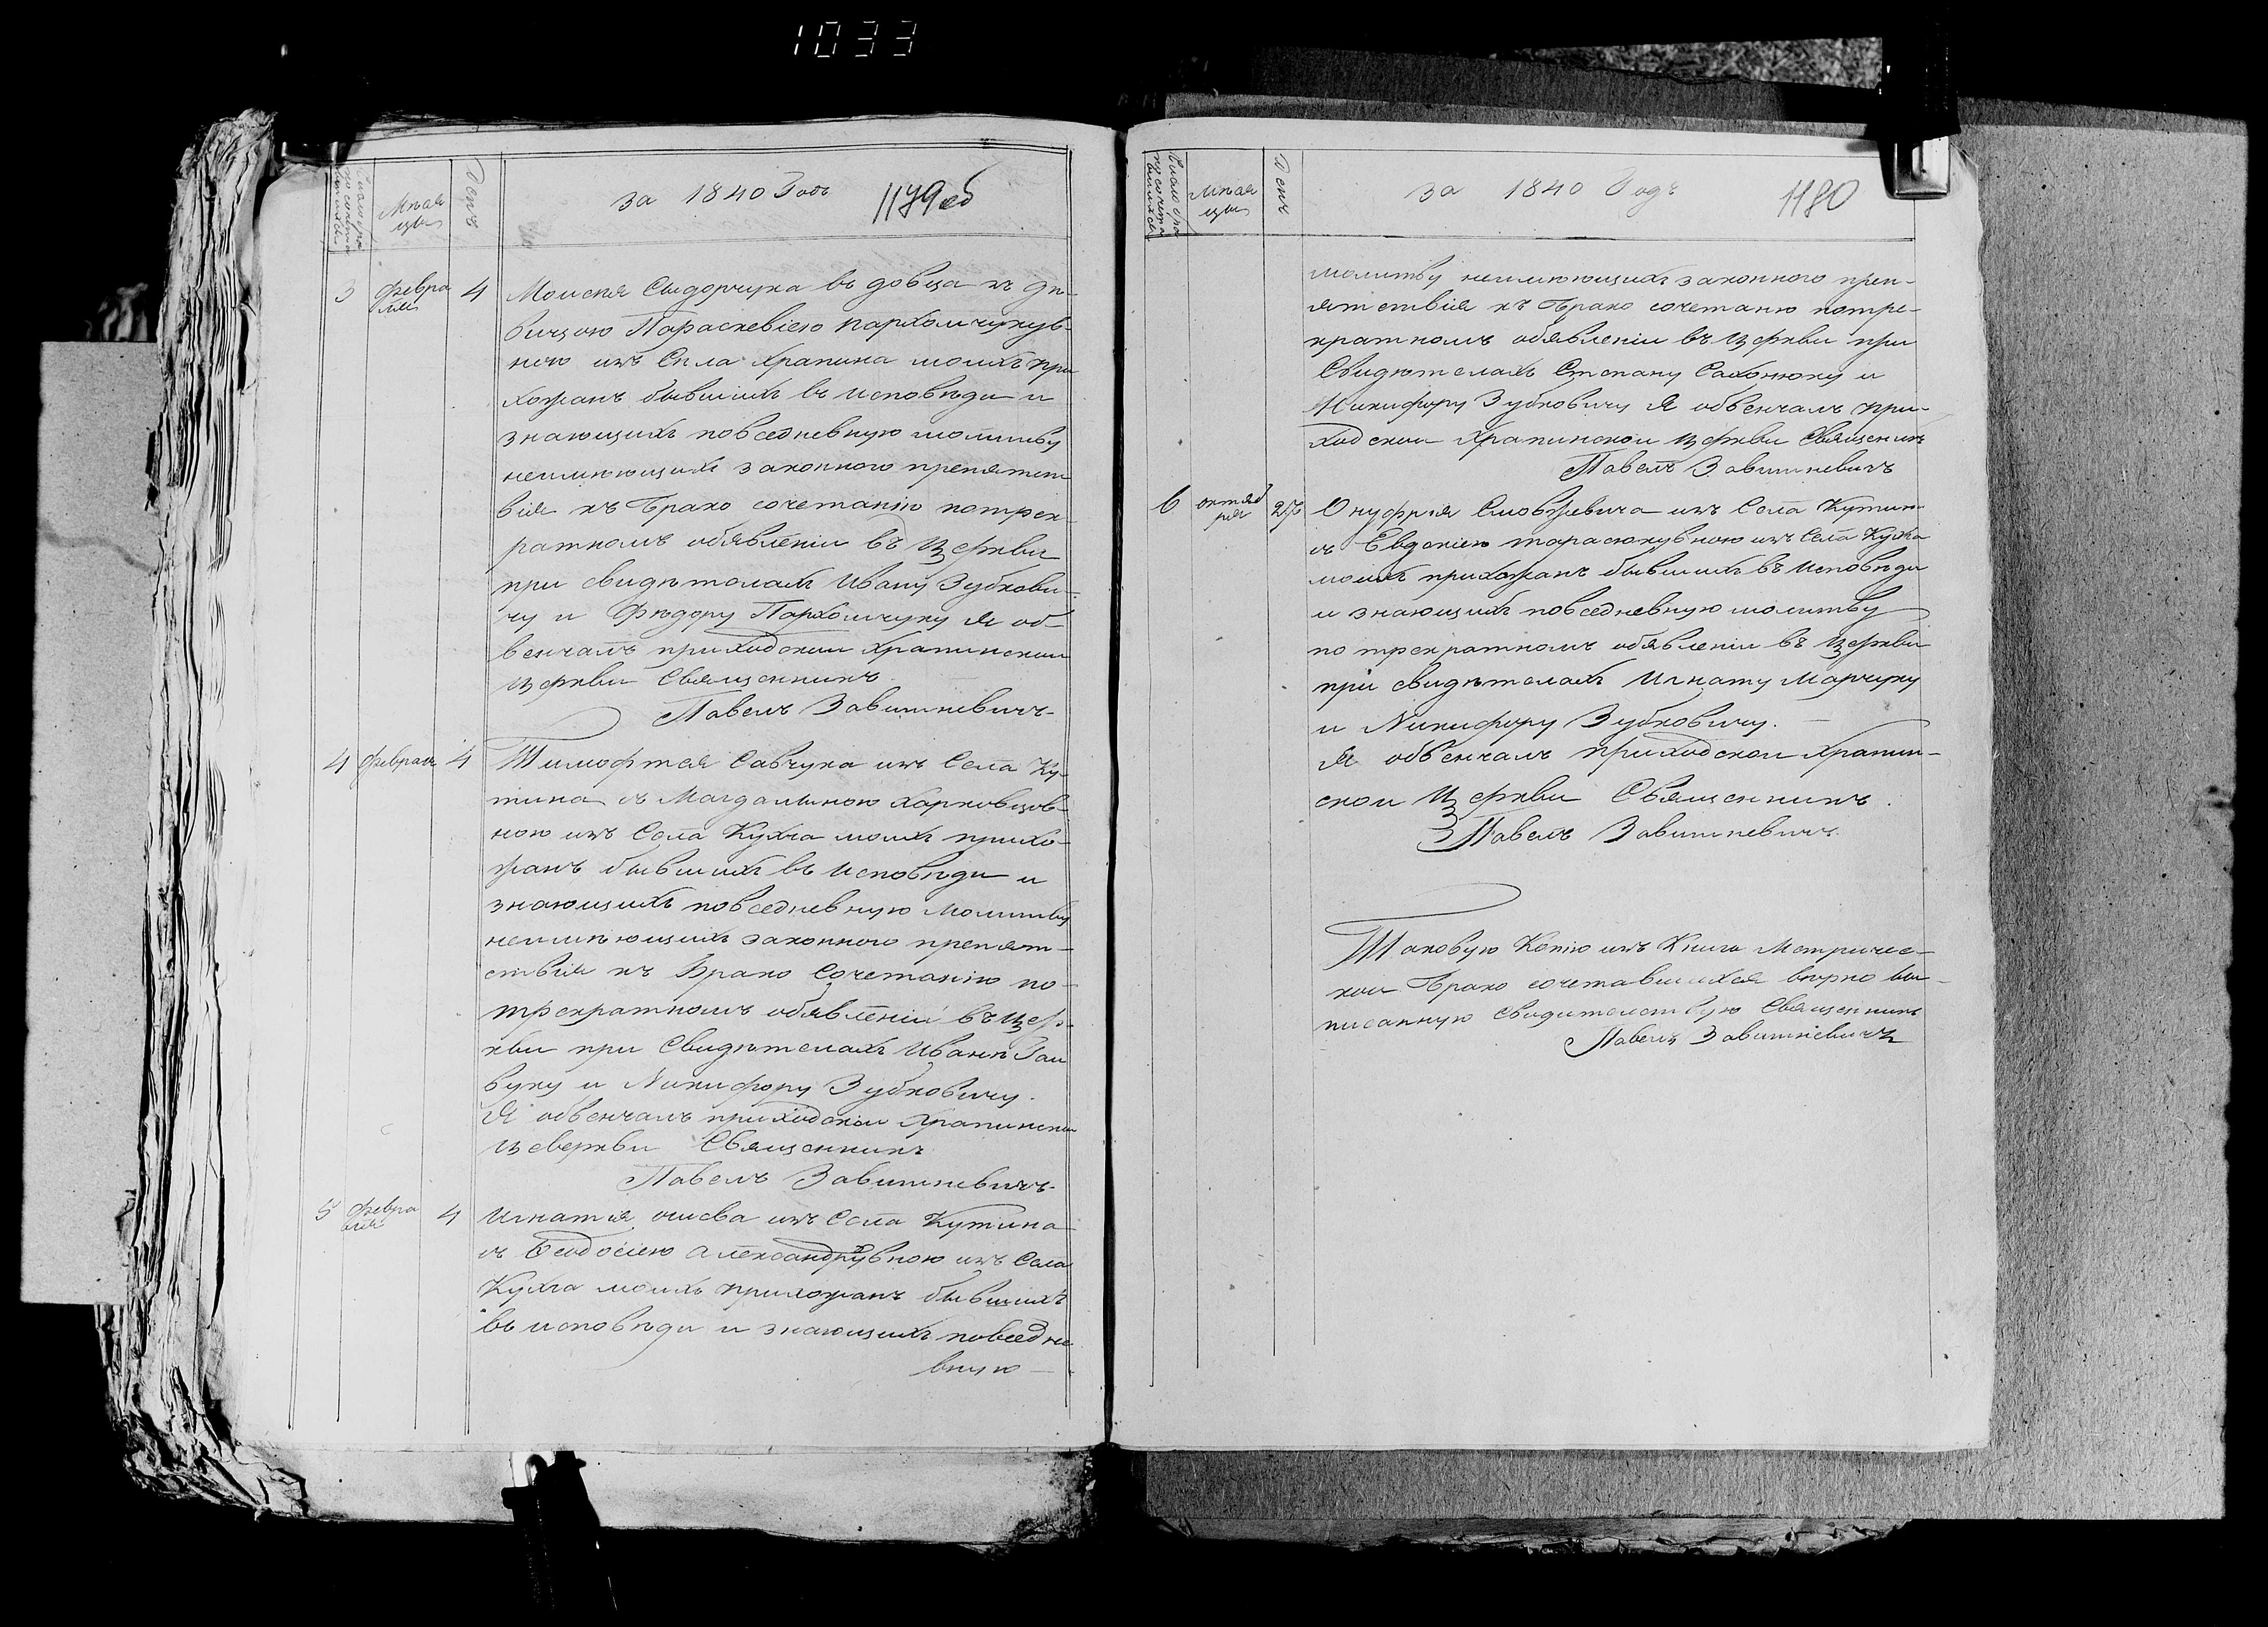 1033
Число бра
ко сочета
вшихся
Мѣся
цы
День
за 1840 Годъ
1179об
3
февра
ля
4
Моисея Сидорчука вдовца съ дѣ-
вицою Параскевіею Пархомчукув-
ною изъ Села Храпина моихъ при
хожанъ бывшихъ въ исповѣди и
знающихъ повседневную молитву
неимѣющихъ законного препятст
вія къ Брако сочетанію потрек-
ратномъ обявленіи въ Церкви
при свидѣтелахъ Ивану Зубкови-
чу и Фѣдору Пархомчуку Я об-
венчалъ приходскои Храпинскои
Церкви Священникъ
Павелъ Завитневичъ
4
февраля
4
Тимофтея Савчука изъ Села Ку-
тина съ Магдалыною Харковцов-
ною изъ Села Кухча моихъ прихо-
жанъ бывшихъ въ исповѣди и
знающихъ повседневную молитву
неимѣющихъ законного препят-
ствія къ Брако Сочетанію по-
трекратномъ обявленіи въ Цер-
кви при Свидѣтелахъ Иванѣ Гаи
вуку и Никифору Зубковичу.
Я обвенчалъ приходскои Храпинскои
Цеверкви Священникъ
Павелъ Завитневичъ
5
февра
ля
4
Игнатія изъ Села Кутина
съ Феодосіею Александрувною изъ Села
Кухча моихъ прихожанъ бывшихъ
въ исповѣди и знающихъ повседне
вную
Число бра
ко сочета
вшихся
Мѣся
цы
День
за 1840 Годъ
1180
молитву неимѣющихъ законного преп-
ятствія къ Брако сочетаню потре-
кратномъ обявленіи въ Церкви при
Свидѣтелахъ Степану Сахонюку и
Никифору Зубковичу Я обвенчалъ при-
ходскои Храпинскои Церкви Священикъ
Павелъ Завитневичъ
6
октяб
ря
27
Онуфрія изъ Села Кутин
съ Евдокіею тарасюкувною изъ Села Кухча
моихъ прихожанъ бывшихъ въ исповѣди
и знающихъ повседневную молитву
по трекратномъ обявленіи въ Церкви
при свидѣтелахъ Игнату Марчуку
и Никифору Зубковичу.
Я обвенчалъ приходскои Храпин-
скои Церкви Священникъ.
Павелъ Завитневичъ
Таковую Копію изъ Книги Метричес-
кои Брако сочетавшихся вѣрно вы-
писанную Свидителствую Священникъ
Павелъ Завитневичъ